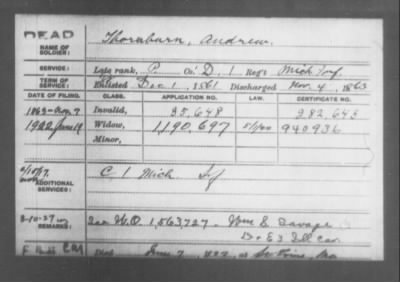 DEAD
NAME OF SOLDIER: Thornburn, Andrew.
SERVICE: Late rank, P. Co. D, 1 Reg't Mich Inf.
TERM OF SERVICE: Enlisted Dec 1, 1861 Discharged Nov. 4, 1863
DATE OF FILING. CLASS. APPLICATION NO. LAW. CERTIFICATE NO.
1863-Nov. 7 Invalid, 35,648 282,645
1922 June 19 Widow, 1,190,697 940936
Minor,
ADDITIONAL SERVICES: C 1 Mich Inf
REMARKS: See W.O. 1,563,727 Wm S. Savage
D & E 3 Ill Cav.
Died June 7, 1922, at